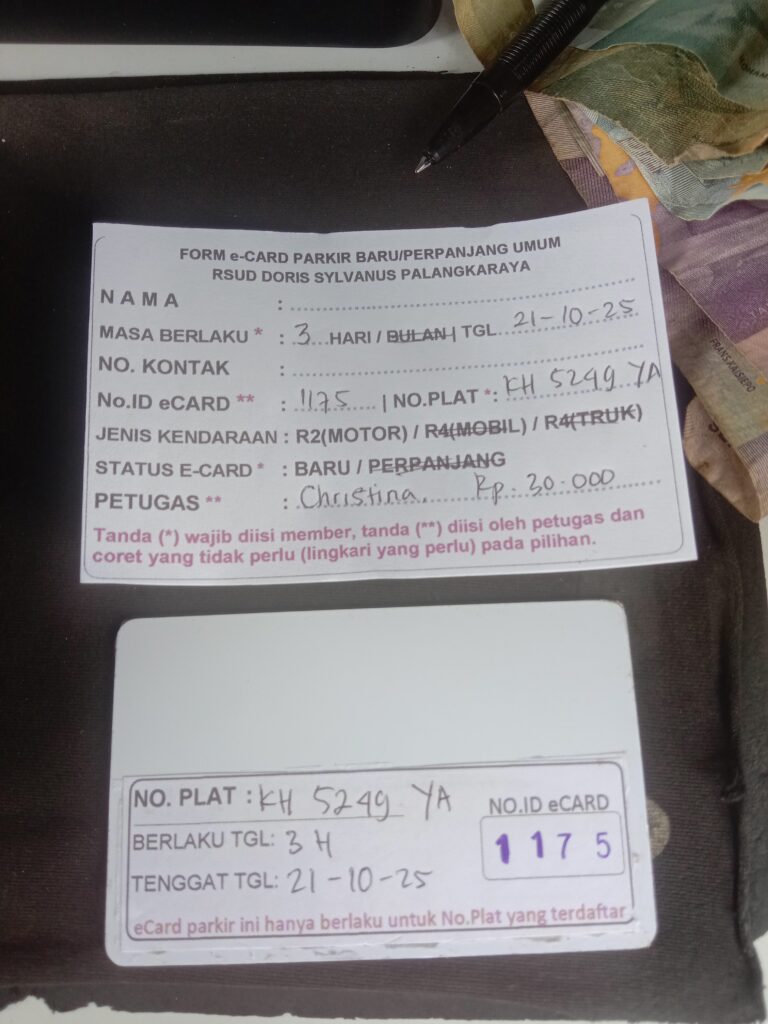 FORM e-CARD PARKIR BARU/PERPANJANG UMUM
RSUD DORIS SYLVANUS PALANGKARAYA
NAMA :
MASA BERLAKU * : 3 HARI / BULAN | TGL 21-10-25
NO. KONTAK :
No.ID eCARD ** : 1175 | NO.PLAT *: KH 5249 YA
JENIS KENDARAAN : R2(MOTOR) / R4(MOBIL) / R4(TRUK)
STATUS E-CARD * : BARU / PERPANJANG
PETUGAS ** : Christina. Rp. 30.000
Tanda (*) wajib diisi member, tanda (**) diisi oleh petugas dan
coret yang tidak perlu (lingkari yang perlu) pada pilihan.
NO. PLAT : KH 5249 YA
NO.ID eCARD
BERLAKU TGL: 3 H
1175
TENGGAT TGL: 21-10-25
eCard parkir ini hanya berlaku untuk No.Plat yang terdaftar
FRANS KAISIEPO